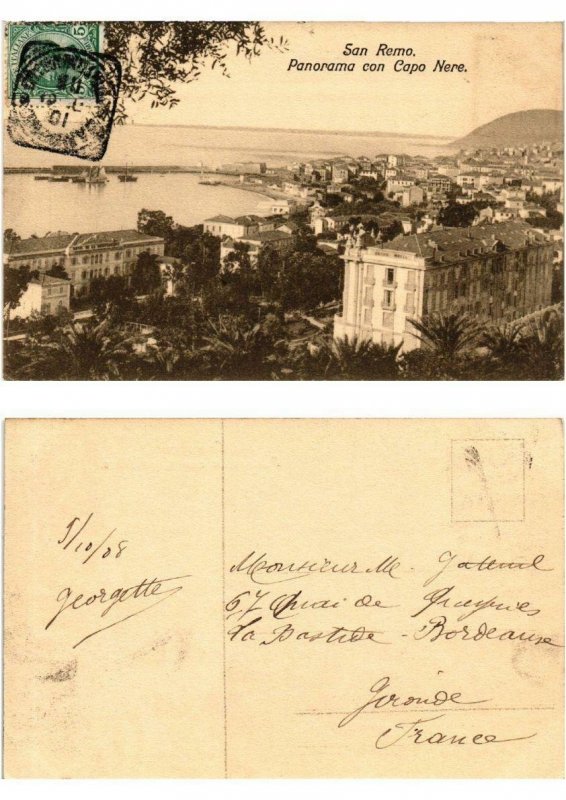 San Remo.
Panorama con Capo Nere.
5
5/10/08
Georgette
Monsieur M.
67 Quai de Queyries
La Bastide - Bordeaux
Gironde
France